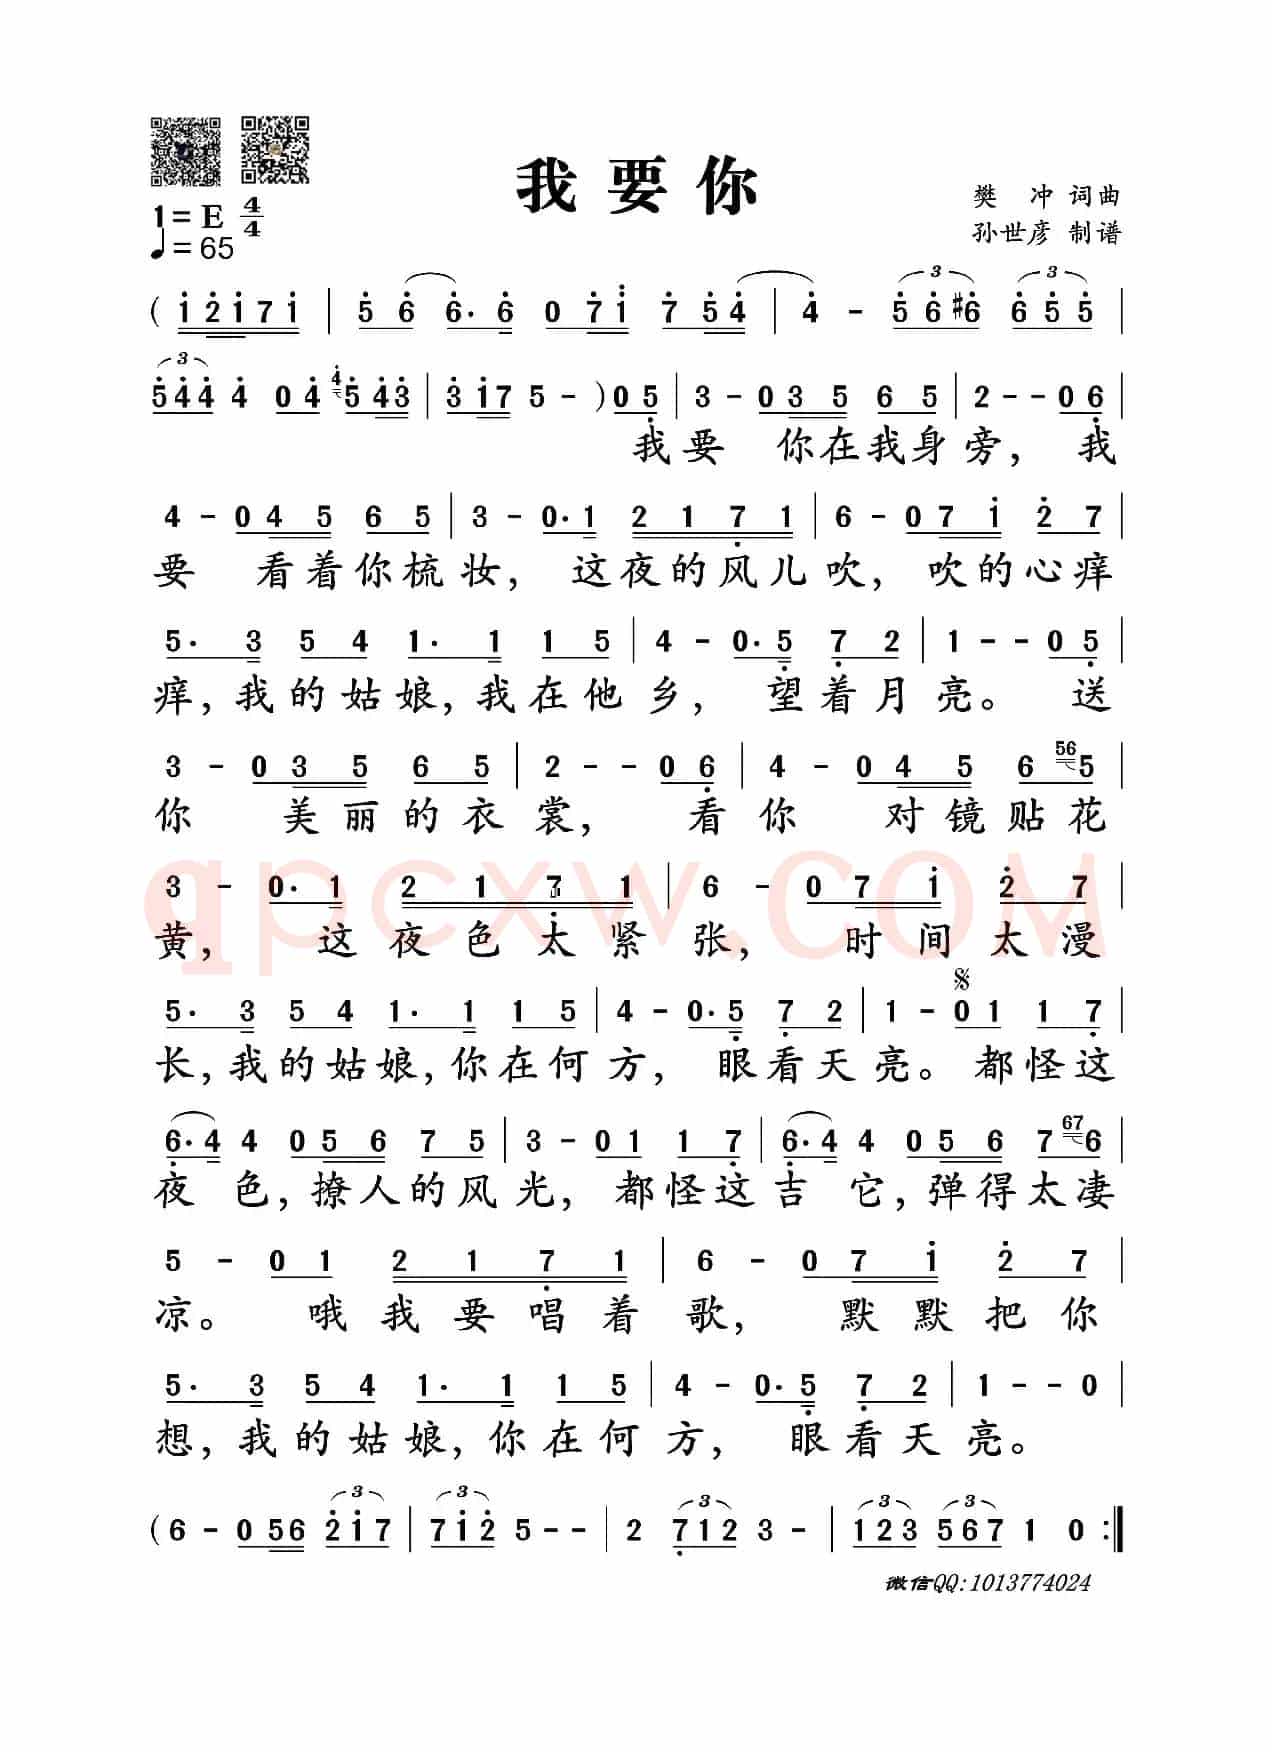 我要你
樊 冲 词曲
孙世彦 制谱
1=E 4/4
♩=65
( 1 2 1 7 1 | 5 6 6· 6 0 7 1 7 5 4 | 4 - 5 6 #6 6 5 5 |
5 4 4 4 0 4 4 5 4 3 | 3 1 7 5 - ) 0 5 | 3 - 0 3 5 6 5 | 2 - - 0 6 |
我要 你在我身旁, 我
4 - 0 4 5 6 5 | 3 - 0· 1 2 1 7 1 | 6 - 0 7 1 2 7 |
要 看着你梳妆, 这夜的风儿吹, 吹的心痒
5· 3 5 4 1· 1 1 5 | 4 - 0· 5 7 2 | 1 - - 0 5 |
痒,我的姑娘,我在他乡, 望着月亮。 送
3 - 0 3 5 6 5 | 2 - - 0 6 | 4 - 0 4 5 6 56 5 |
你 美丽的衣裳, 看你 对镜贴花
3 - 0· 1 2 1 7 1 | 6 - 0 7 1 2 7 |
黄, 这夜色太紧张, 时间太漫
5· 3 5 4 1· 1 1 5 | 4 - 0· 5 7 2 | 1 - 0 1 1 7 |
长,我的姑娘,你在何方, 眼看天亮。 都怪这
6· 4 4 0 5 6 7 5 | 3 - 0 1 1 7 | 6· 4 4 0 5 6 7 67 6 |
夜色,撩人的风光, 都怪这吉它,弹得太凄
5 - 0 1 2 1 7 1 | 6 - 0 7 1 2 7 |
凉。 哦我要唱着歌, 默默把你
5· 3 5 4 1· 1 1 5 | 4 - 0· 5 7 2 | 1 - - 0 |
想,我的姑娘,你在何方, 眼看天亮。
( 6 - 0 5 6 2 1 7 | 7 1 2 5 - - | 2 7 1 2 3 - | 1 2 3 5 6 7 1 0 :||
微信QQ:1013774024
qpcxw.COM